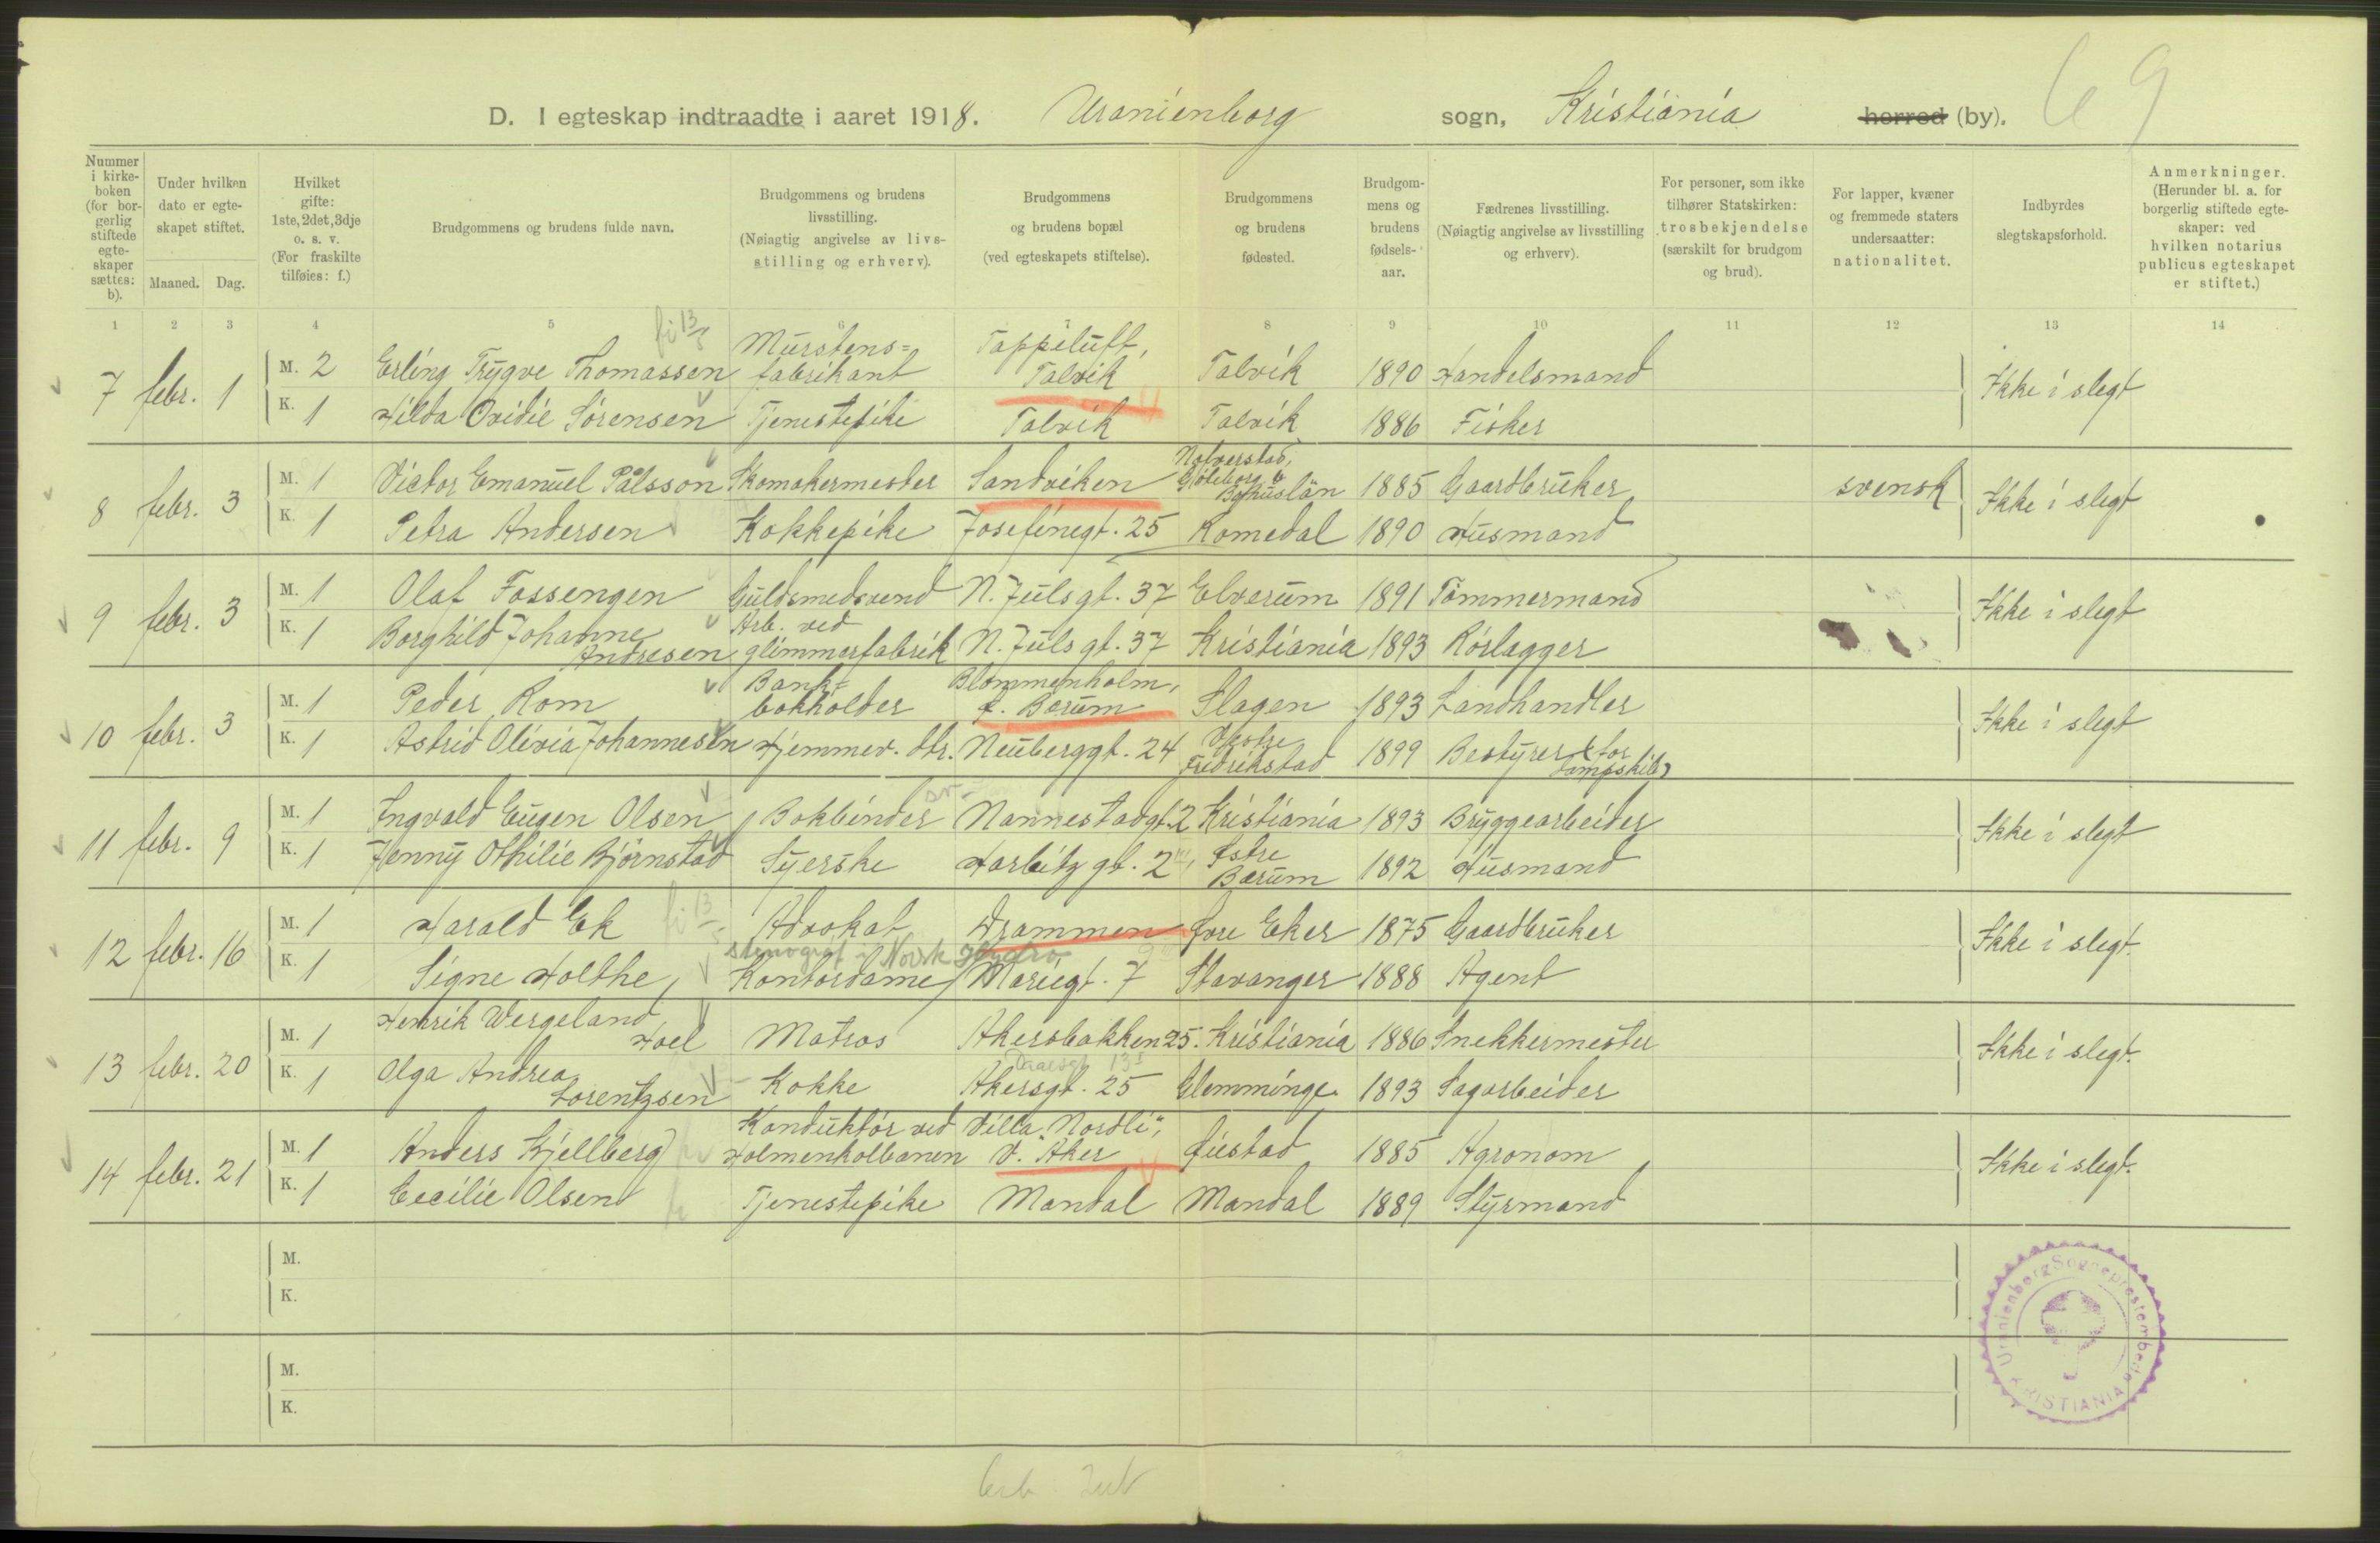 69
D. I egteskap indtraadte i aaret 1918. Uranienborg sogn, Kristiania herred (by).
Nummer i kirkeboken (for borgerlig stiftede egteskaper sættes: b).
Under hvilken dato er egteskapet stiftet.
Maaned. Dag.
Hvilket gifte: 1ste, 2det, 3dje o. s. v. (For fraskilte tilføies: f.)
Brudgommens og brudens fulde navn.
Brudgommens og brudens livsstilling. (Nøiagtig angivelse av livsstilling og erhverv).
Brudgommens og brudens bopæl (ved egteskapets stiftelse).
Brudgommens og brudens fødested.
Brudgommens og brudens fødselsaar.
Fædrenes livsstilling. (Nøiagtig angivelse av livsstilling og erhverv).
For personer, som ikke tilhører Statskirken: trosbekjendelse (særskilt for brudgom og brud).
For lapper, kvæner og fremmede staters undersaatter: nationalitet.
Indbyrdes slegtskapsforhold.
Anmerkninger. (Herunder bl. a. for borgerlig stiftede egteskaper: ved hvilken notarius publicus egteskapet er stiftet.)
1 2 3 4 5 6 7 8 9 10 11 12 13 14
7 febr. 1 M. 2 Erling Trygve Thomassen Murstens= fabrikant Tappeluft, Talvik Talvik 1890 Handelsmand Ikke i slegt
K. 1 Hilda Ovidie Sørensen Tjenestepike Talvik Talvik 1886 Fisker
8 febr. 3 M. 1 Victor Emanuel Pålsson Skomakermester Sandviken Göteborg & Bohuslän 1885 Gaardbruker svensk Ikke i slegt
K. 1 Petra Andersen Kokkepike Josefinegt. 25 Romedal 1890 Husmand
9 febr. 3 M. 1 Olaf Fossengen Guldsmedsvend N. Juls gt. 37 Elverum 1891 Tømmermand Ikke i slegt
K. 1 Borghild Johanne Andresen Arb. ved glimmerfabrik N. Juls gt. 37 Kristiania 1893 Rørlægger
10 febr. 3 M. 1 Peder Rom Bank= bokholder Blommenholm, Ø. Bærum Slagen 1893 Landhandler Ikke i slegt
K. 1 Astrid Olivia Johannesen Hjemmev. dtr. Neuberggt. 24 Vestre Fredrikstad 1899 Bestyrer for dampskib
11 febr. 9 M. 1 Ingvald Eugen Olsen Bokbinder Nannestadgt. 2 Kristiania 1893 Bryggearbeider Ikke i slegt
K. 1 Jenny Othilie Bjørnstad Syerske Harbitz gt. 2 Østre Bærum 1892 Husmand
12 febr. 16 M. 1 Harald Ek Advokat Drammen Øvre Eker 1875 Gaardbruker Ikke i slegt.
stenograf i Norsk Hydro
K. 1 Signe Holthe Kontordame Mariegt. 7 Stavanger 1888 Agent
13 febr. 20 M. 1 Henrik Wergeland Hoel Matros Akersbakken 25. Kristiania 1886 Snekkermester Ikke i slegt.
K. 1 Olga Andrea Lorentzsen Kokke Akersgt. 25 Glemminge 1893 Sagarbeider
14 febr. 21 M. 1 Anders Kjellberg Konduktør ved Holmenkolbanen Villa "Nordli", V. Aker Øiestad 1885 Agronom Ikke i slegt.
K. 1 Cecilie Olsen Tjenestepike Mandal Mandal 1889 Styrmand
M.
K.
M.
K.
Uranienborg Sogneprestembede
KRISTIANIA